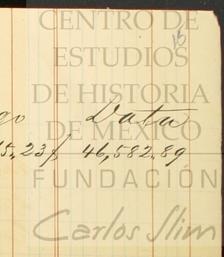 CENTRO DE
ESTUDIOS
DE HISTORIA
DE MÉXICO
FUNDACIÓN
Carlos Slim
15
go Data
5,23 46,582.89